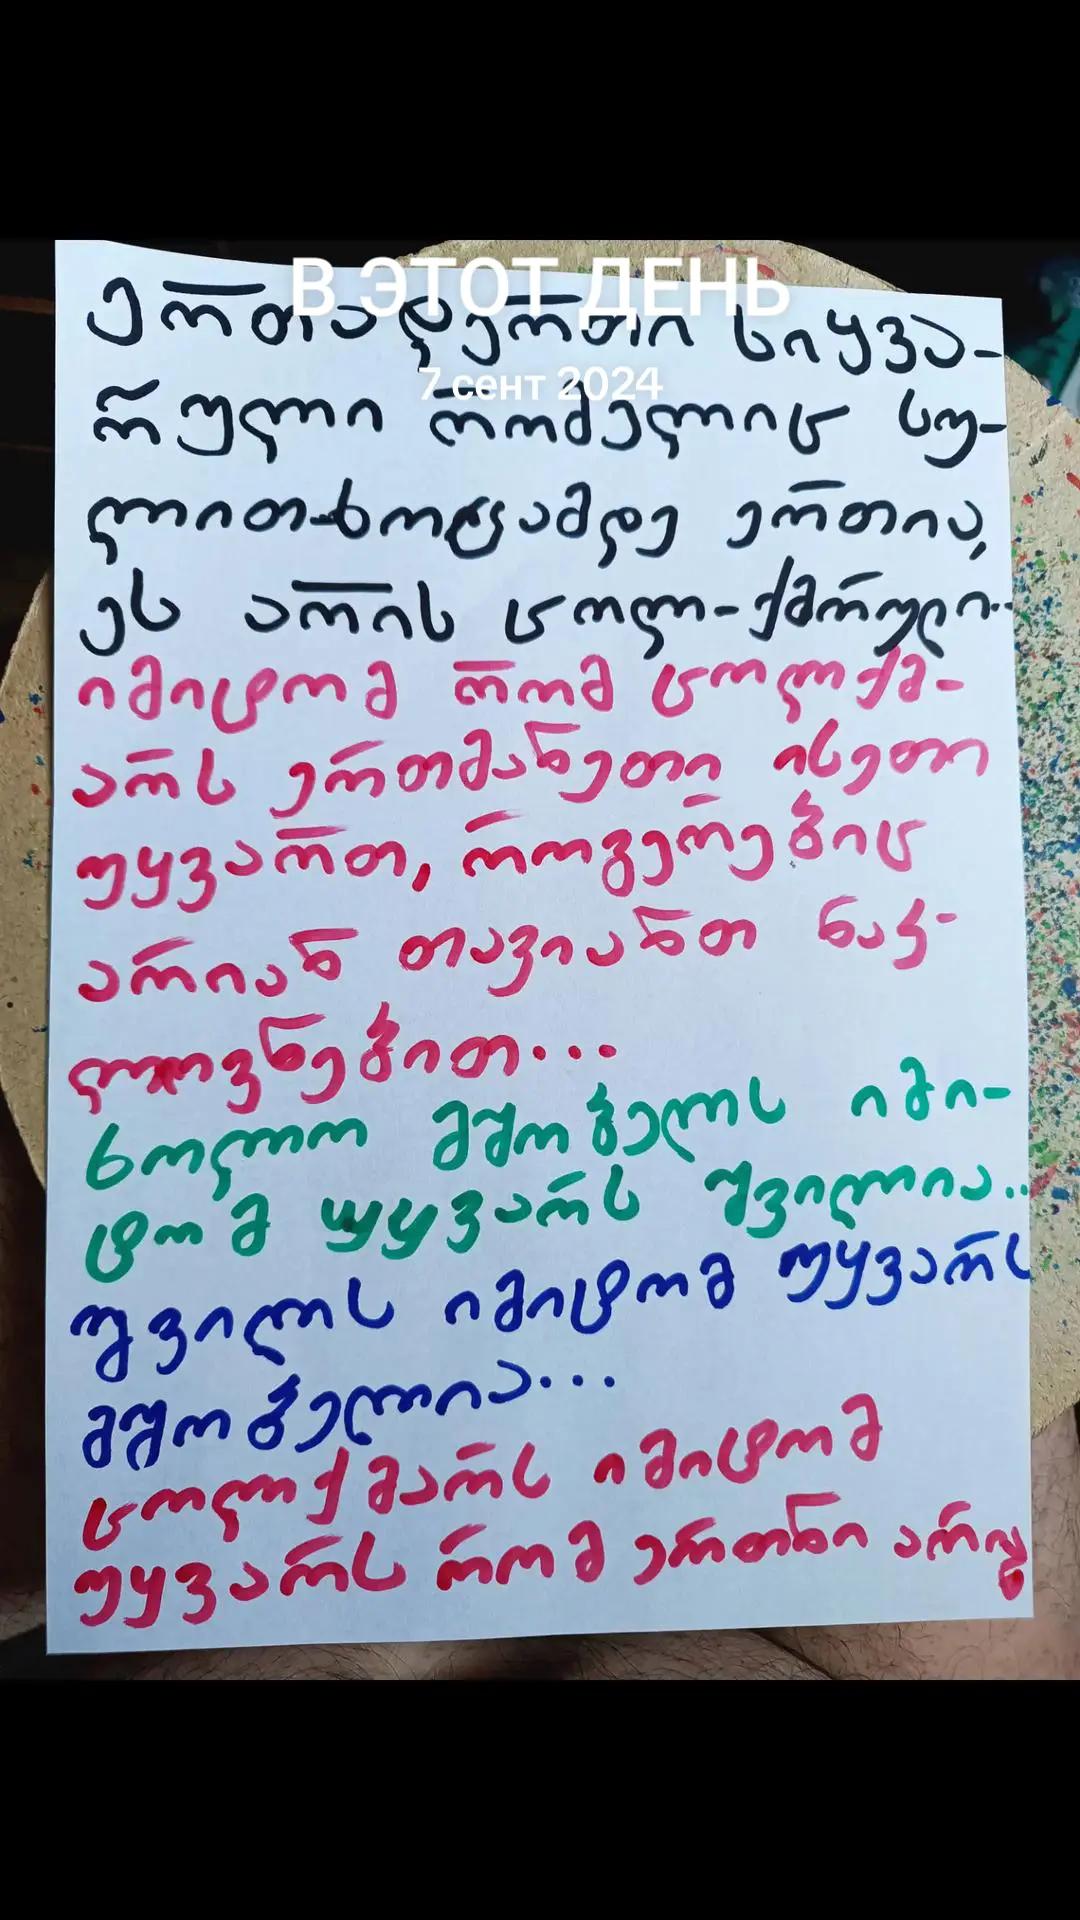 В ЭТОТ ДЕНЬ
7 сент 2024
ერთადერთი სიყვა-
რული რომელიც სუ-
ლით-ხორცამდე ერთია,
ეს არის ცოლ-ქმრული..
იმიტომ რომ ცოლქმ-
არს ერთმანეთი ისეთი
უყვართ, როგორებიც
არიან თავიანთ ნაკ-
ლოვნებით...
ხოლო მშობელს იმი-
ტომ უყვარს შვილია..
შვილს იმიტომ უყვარს
მშობელია...
ცოლქმარს იმიტომ
უყვარს რომ ერთნი